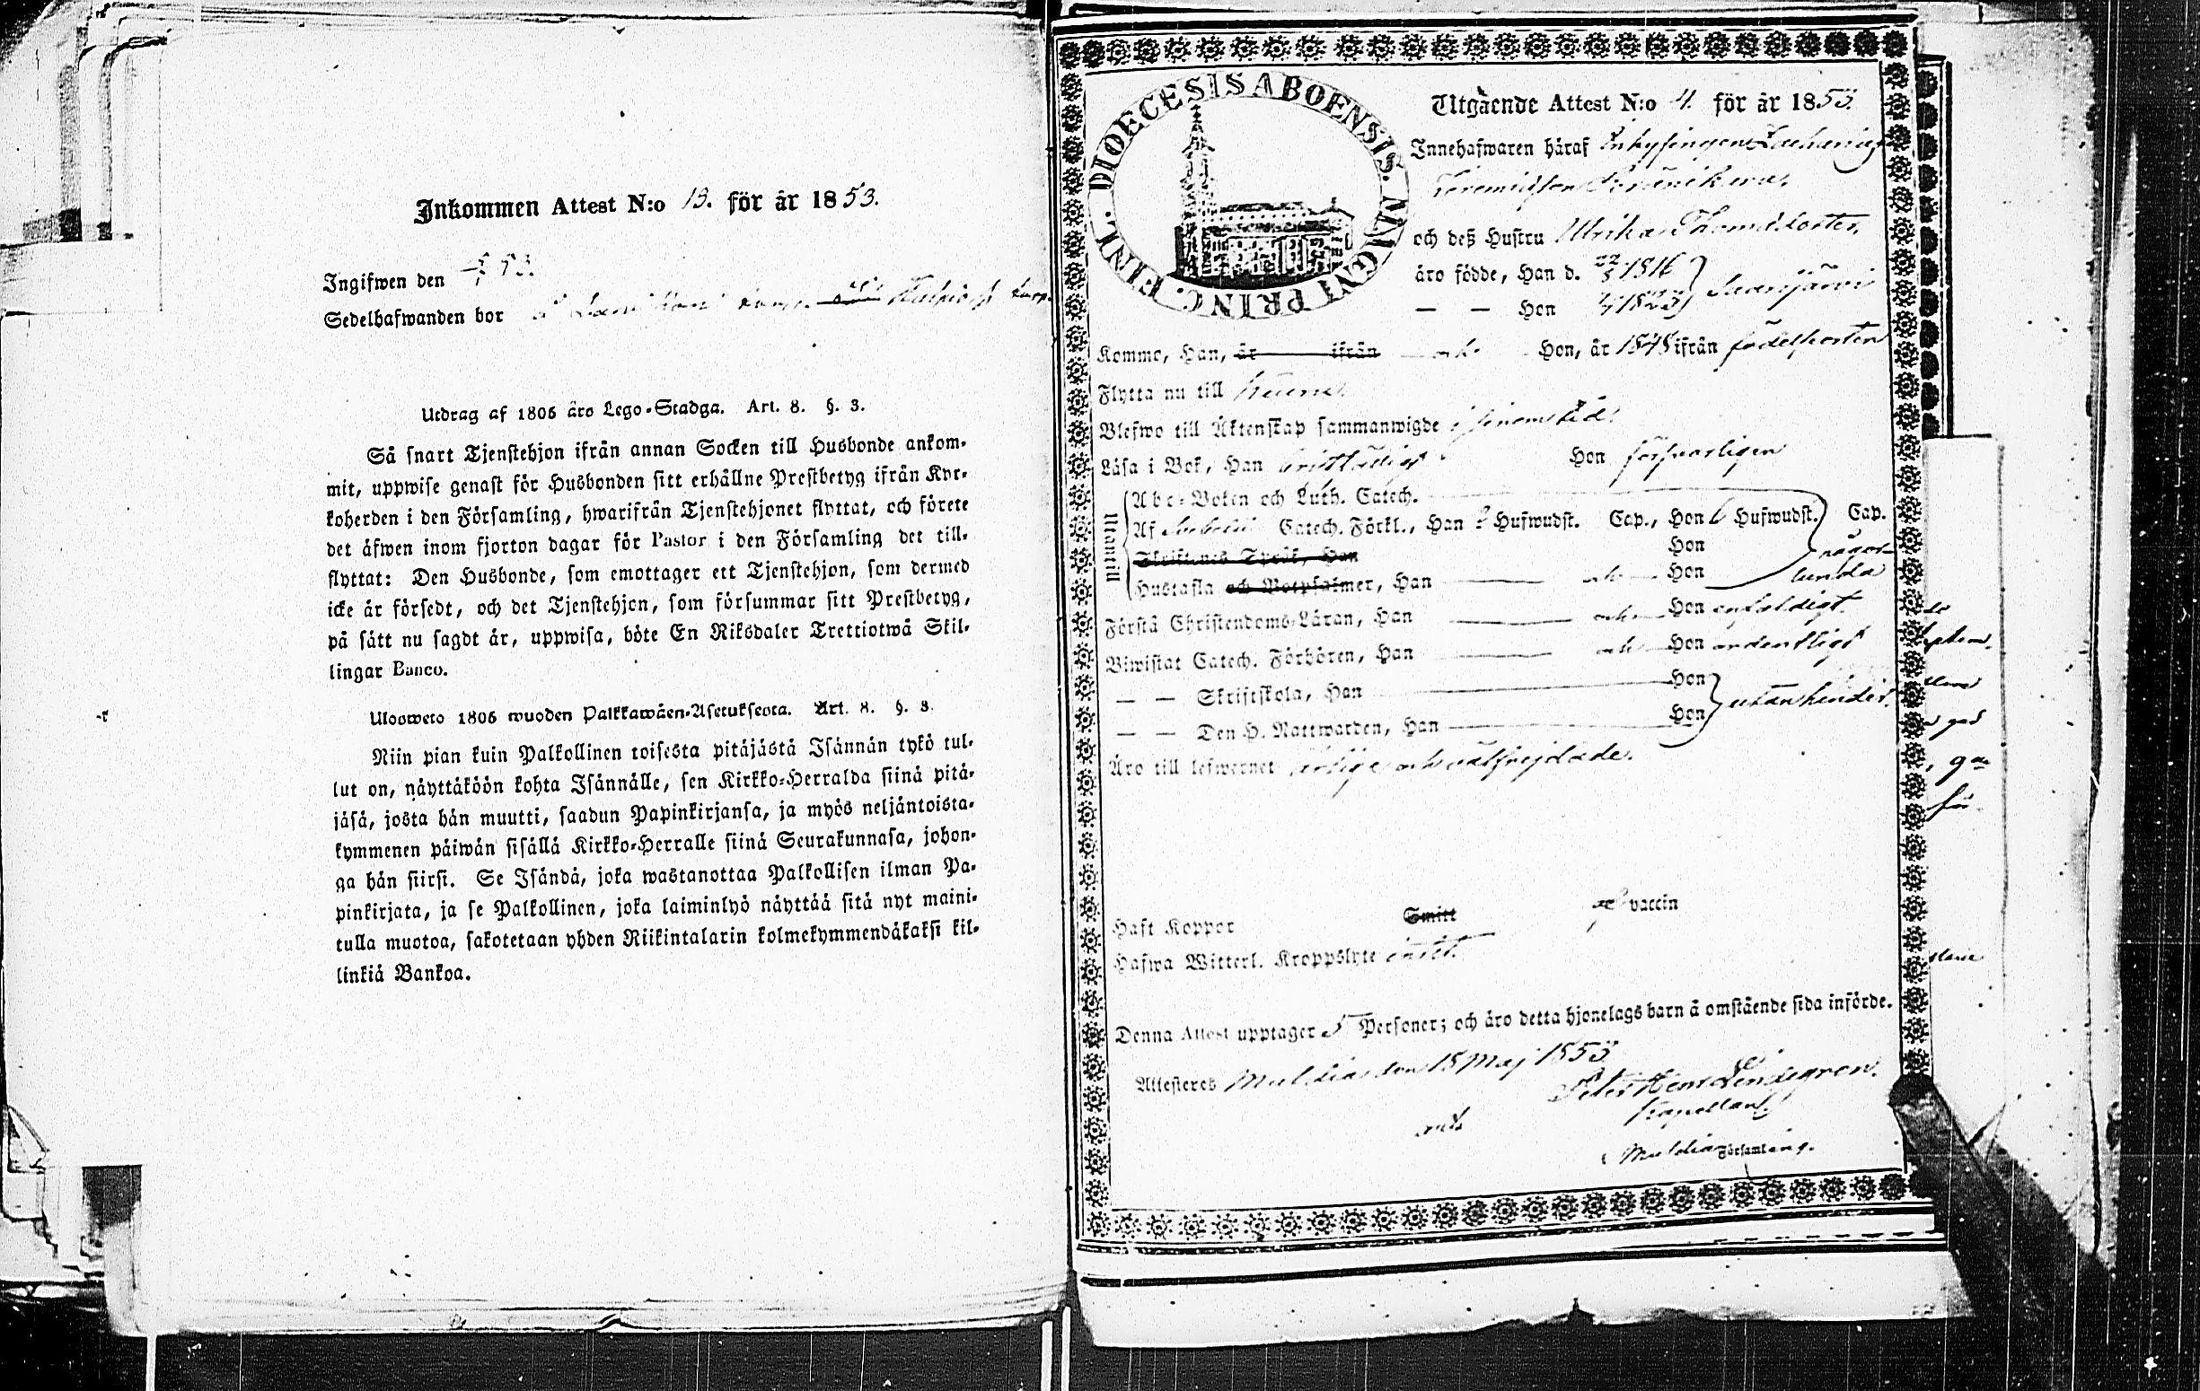 Inkommen Attest N:o 13. för år 1853.
Ingifwen den 53.
Sedelhafwanden bor
Utdrag af 1805 års Lego-Stadga. Art. 8. §. 3.
Så snart Tjenstehjon ifrån annan Socken till Husbonde ankom-
mit, uppwise genast för Husbonden sitt erhållne Prestbetyg ifrån Kyr-
koherden i den Församling, hwarifrån Tjenstehjonet flyttat, och förete
det äfwen inom fjorton dagar för Pastor i den Församling det till-
flyttat: Den Husbonde, som emottager ett Tjenstehjon, som dermed
icke är försedt, och det Tjenstehjon, som försummar sitt Prestbetyg,
på sätt nu sagdt är, uppwisa, böte En Riksdaler Trettiotwå Skil-
lingar Banco.
Ulosweto 1805 wuoden Palkkawäen-Asetuksesta. Art. 8. §. 3.
Niin pian kuin Palkollinen toisesta pitäjästä Isännän tykö tul-
lut on, näyttäköön kohta Isännälle, sen Kirkko-Herralda siinä pitä-
jäsä, josta hän muutti, saadun Papinkirjansa, ja myös neljäntoista-
kymmenen päiwän sisällä Kirkko-Herralle siinä Seurakunnasa, johon-
ga hän siirsi. Se Isändä, joka wastanottaa Palkollisen ilman Pa-
pinkirjata, ja se Palkollinen, joka laiminlyö näyttää sitä nyt maini-
tulla muotoa, sakotetaan yhden Riikintalarin kolmekymmendäkaksi kil-
linkiä Bankoa.
DIOECESIS ABOENSIS. MAGNI PRINC. FINL.
Utgående Attest N:o 4. för år 1853.
Innehafwaren häraf Inhysingen Zacharias
och deß Hustru Ulrika Thomasdotter,
äro födde, Han d. 1816
— — Hon 1823 Saarijärvi
Kommo, Han, år ifrån och Hon, år 1848 ifrån födelseorten
Flytta nu till
Blefwo till Äktenskap sammanwigde
Läsa i Bok, Han Hon försvarligen
Utantill
Abc-Boken och Luth. Catech.
Af Catech. Förkl., Han Hufwudst. Cap., Hon 6 Hufwudst. Cap.
Skriftenes Språk, Han Hon någor-
Hustafla och Botpsalmer, Han och Hon lunda
Förstå Christendoms-Läran, Han och Hon enfaldigt
Biwistat Catech. Förhören, Han och Hon ordentligt
— — Skriftskola, Han Hon
— — Den H. Nattwarden, Han Hon utan hinder.
Äro till lefwernet ärlige och välfrejdade.
Haft Koppor Smitt vaccin
Hafwa Witterl. Kroppslyte intet.
Denna Attest upptager 5 Personer; och äro detta hjonelags barn å omstående sida införde.
Attesteras Muldia den 18 Maj 1853
Peter Henr Lindegren.
Capellan
Muldia Församling.